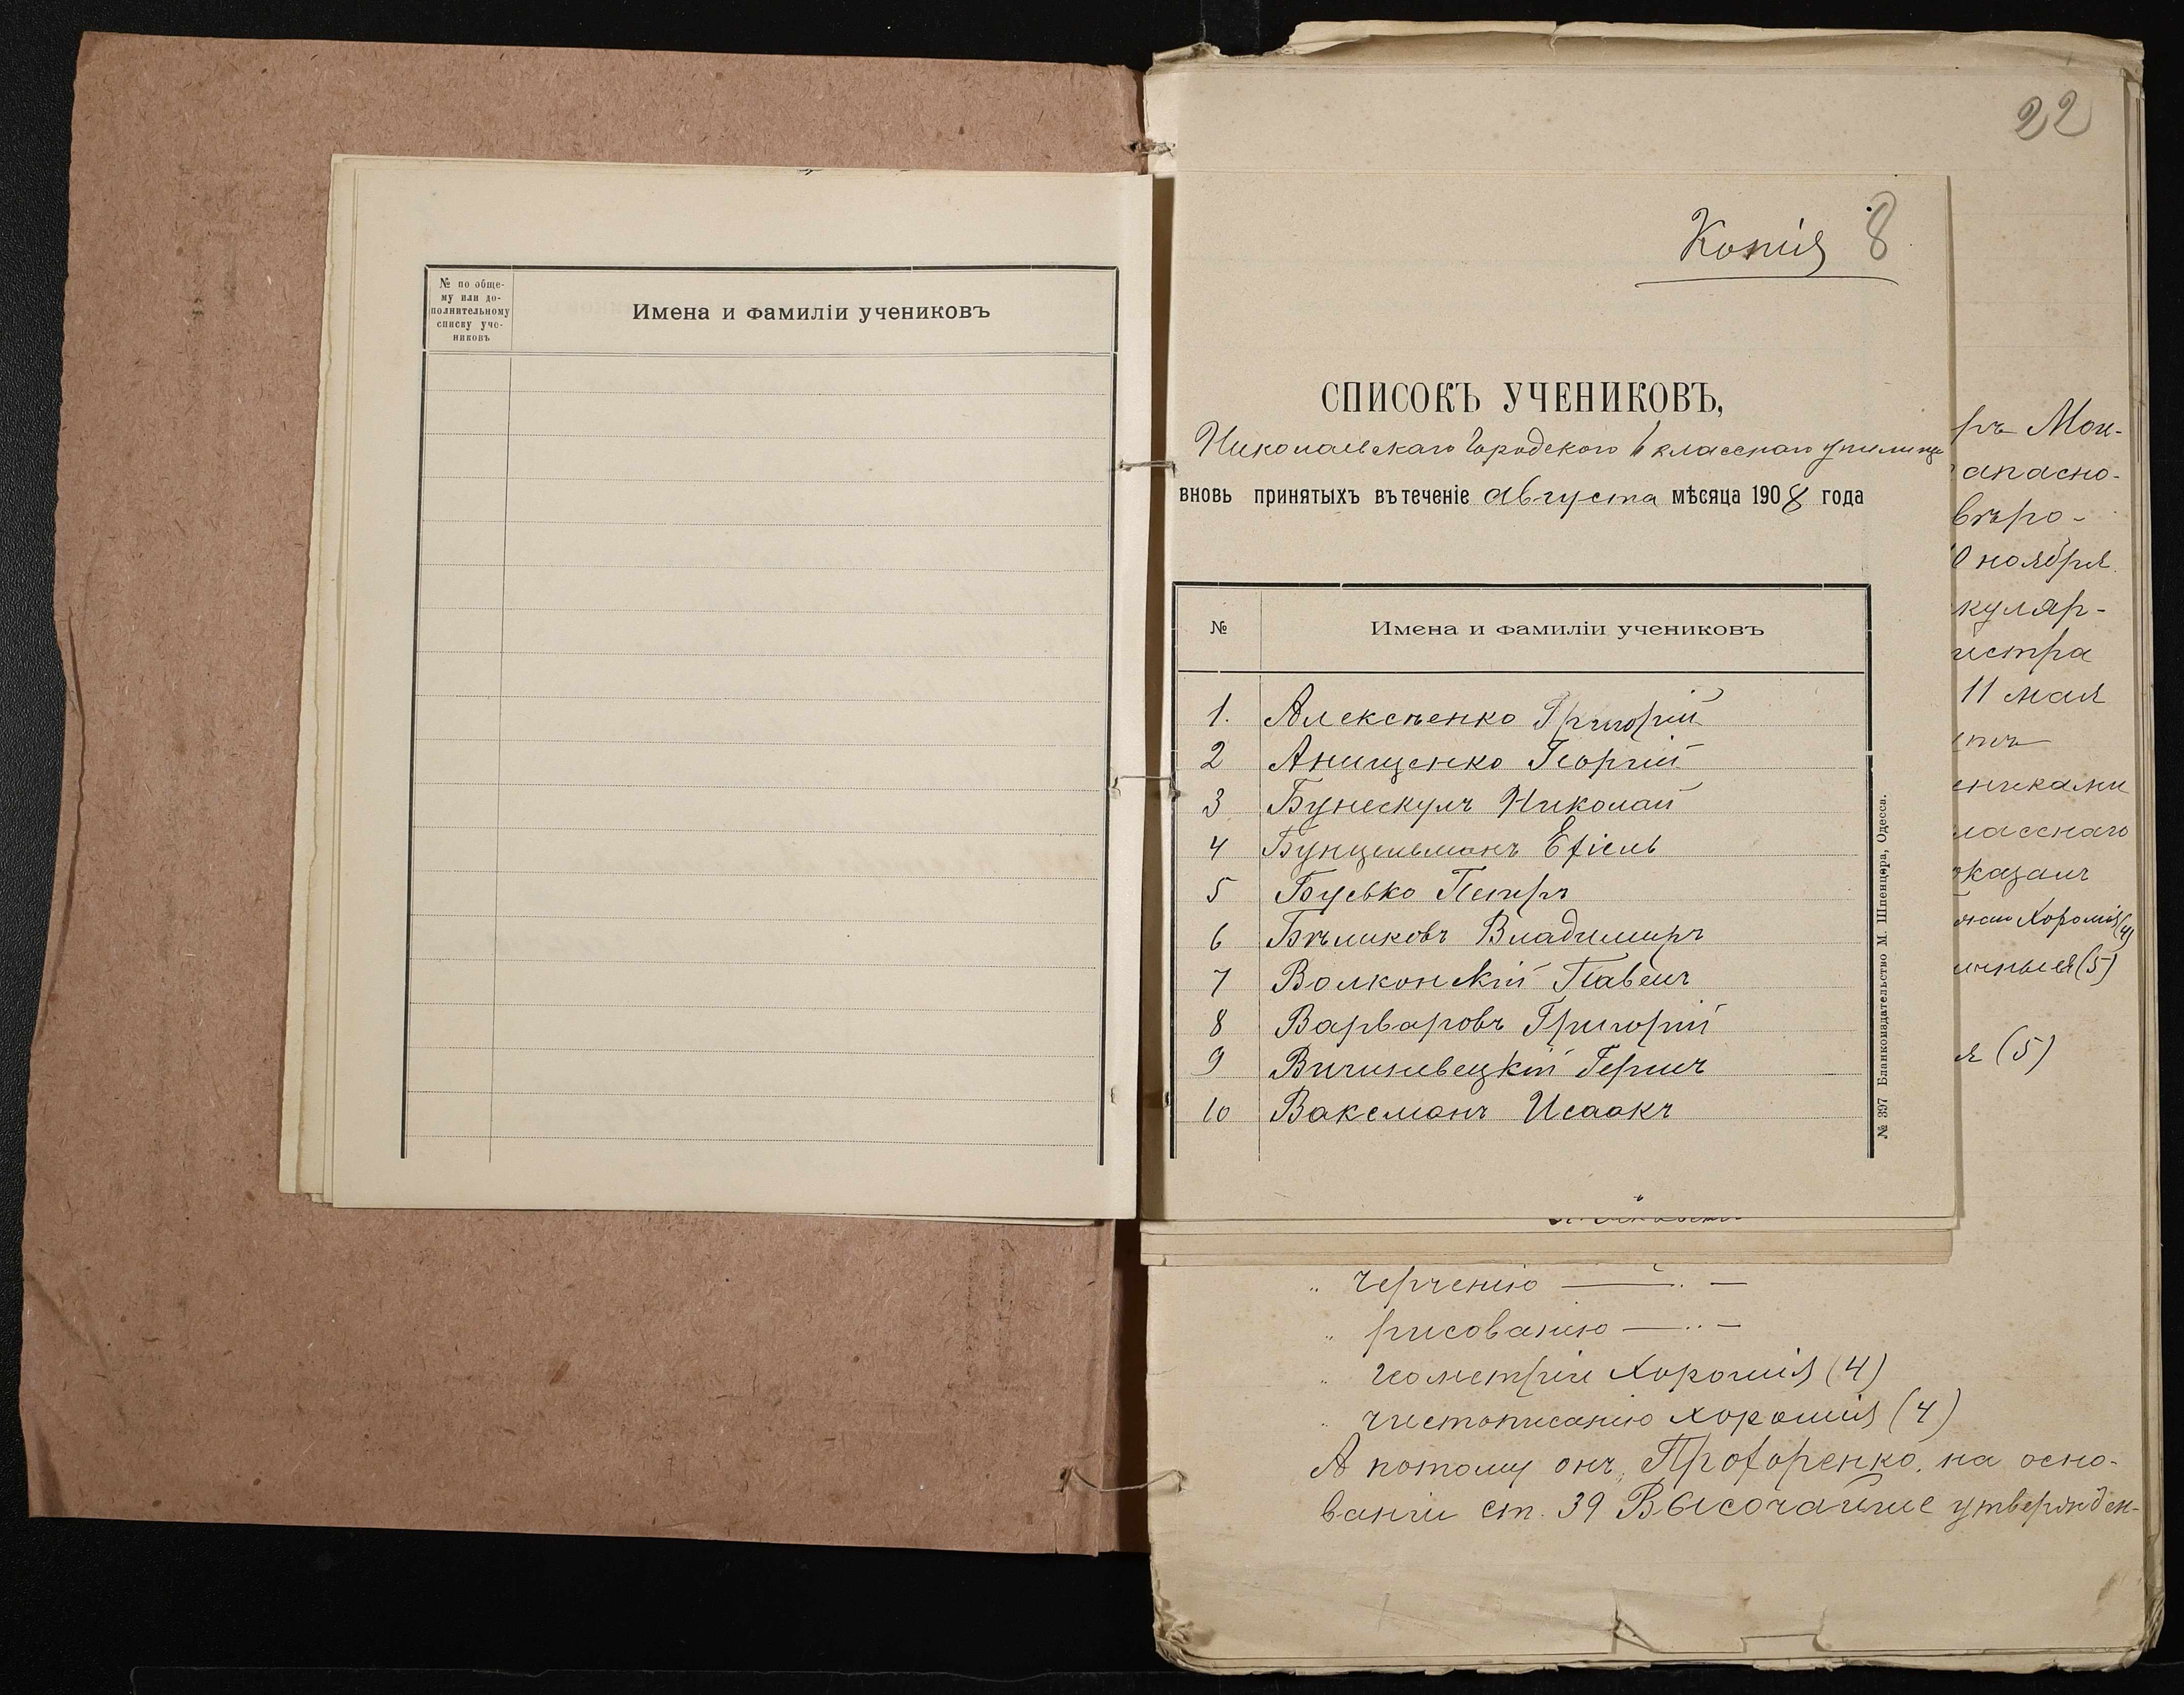 № по обще-
му или до-
полнительному
списку уче-
никовъ
Имена и фамиліи учениковъ
22
Копія 8
СПИСОКЪ УЧЕНИКОВЪ,
Николаевскаго Городского 6 класснаго училища
вновь принятыхъ въ теченіе августа мѣсяца 1908 года
№ Имена и фамиліи учениковъ
1. Алексѣенко Григорій
2 Анищенко Георгій
3 Бунескулъ Николай
4 Бунцельманъ Ехіель
5 Бусько Петръ
6 Бѣликовъ Владимиръ
7 Волконскій Павелъ
8 Варваровъ Григорій
9 Вичиневецкій Гершъ
10 Ваксманъ Исаакъ
№ 397 Бланкоиздательство М. Шпенцера, Одесса.
ръ Мои-
апасно-
вѣро-
0 ноября
куляр-
истра
11 мая
етъ
ениками
ласснаго
оказалъ
Хорошія (4)
(5)
я (5)
„ черченію — „ —
„ рисованію — „ —
„ геометріи хорошія (4)
„ чистописанію хорошія (4)
А потому онъ, Прохоренко, на осно-
ваніи ст. 39 Высочайше утвержден-